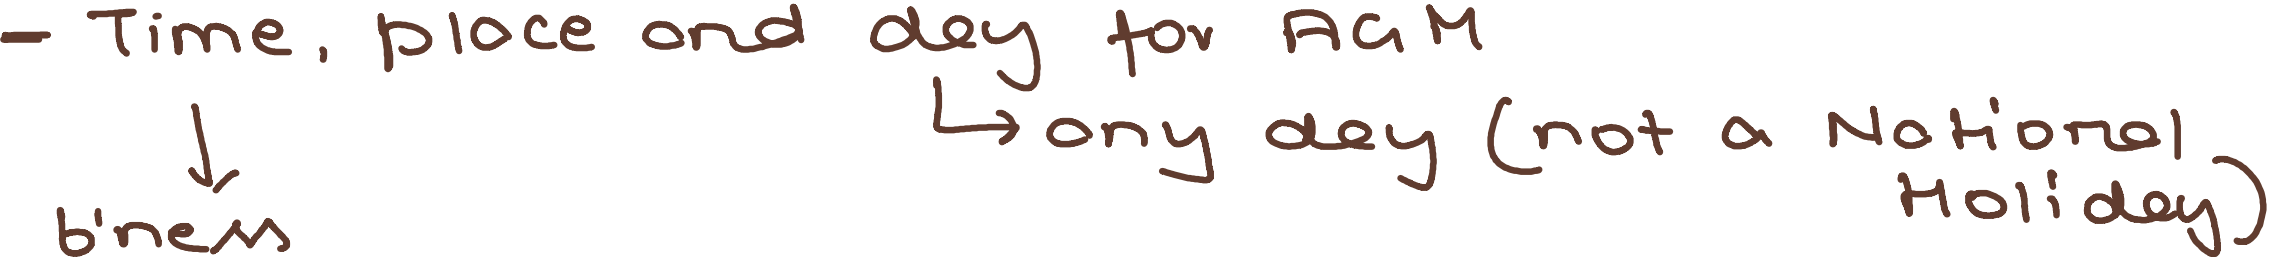 - Time, place and day for AGM
↳ any day (not a National
Holiday)
↓
b'ness